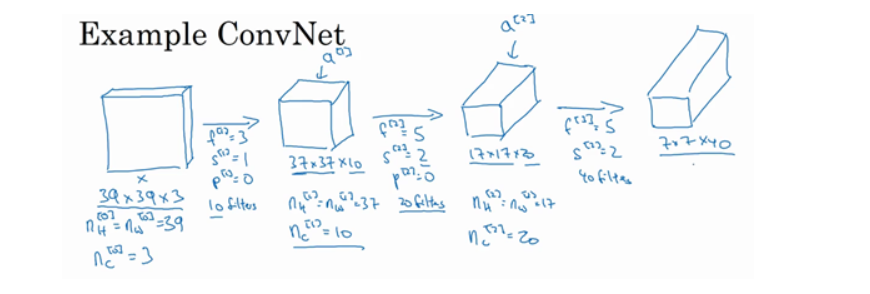 Example ConvNet
a^[1]
a^[2]
x
39×39×3
n_H^[0] = n_W^[0] = 39
n_C^[0] = 3
f^[1] = 3
s^[1] = 1
p^[1] = 0
10 filters
37×37×10
n_H^[1] = n_W^[1] = 37
n_C^[1] = 10
f^[2] = 5
s^[2] = 2
p^[2] = 0
20 filters
17×17×20
n_H^[2] = n_W^[2] = 17
n_C^[2] = 20
f^[3] = 5
s^[3] = 2
40 filters
7×7×40